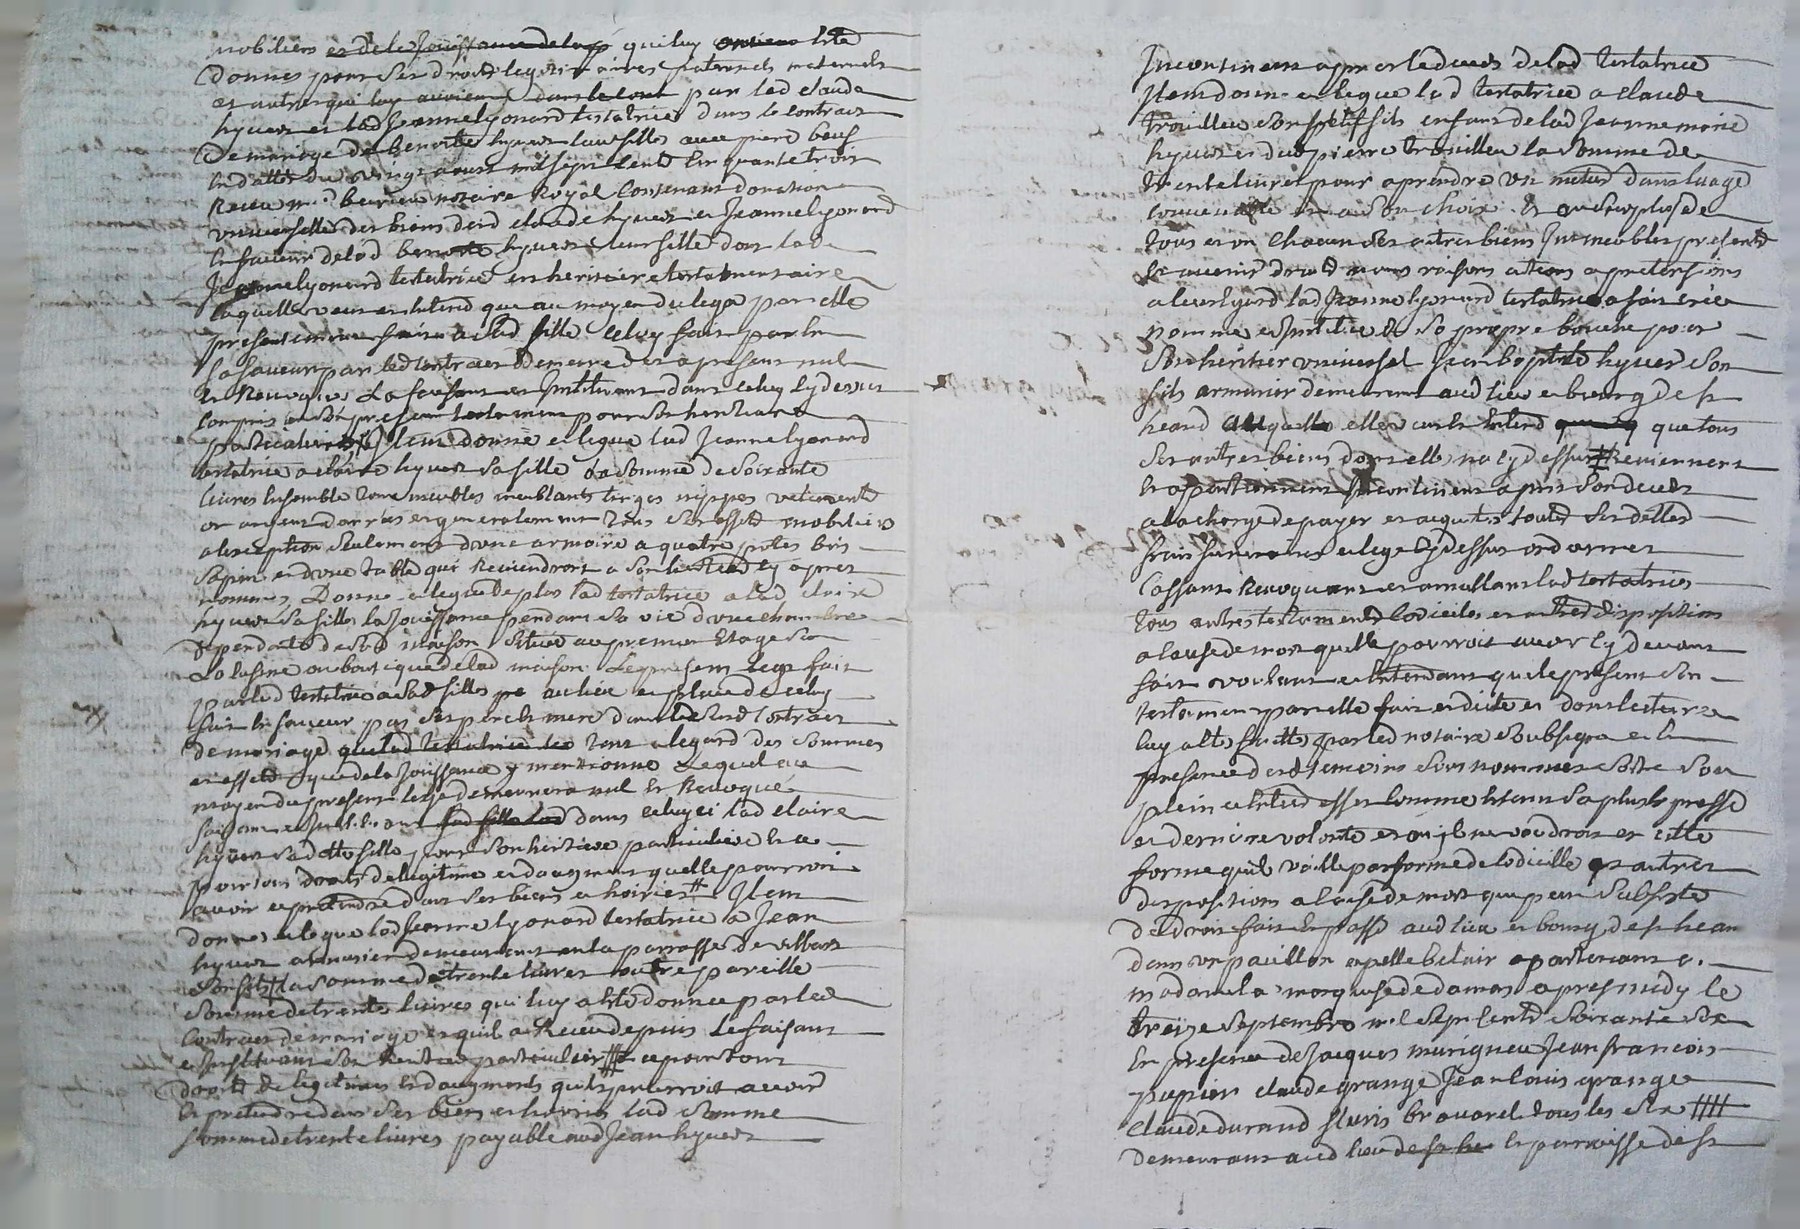 mobiliers et de la Jouissance de lad qui luy ont été
donnes pour ses droits legitimaires paternels maternels
et autres qui luy dans le cont par led claude
hyver et lad Jeanne lyonard testatrice dans le contract
de mariage de benoitte hyver leur fille avec pierre
en datte du vingt aoust mil sept cent cinquante trois
Receu me notaire Royal Contenant donation
universelle des biens desd claude hyver et Jeanne lyonard
en faveur de lad benoitte hyver leur fille dont lad
Jeanne lyonard testatrice en heritiere testamentaire
laquelle veut et entend que au moyen du lega par elle
presentement fait a lad fille celuy fait par
sa faveur par led contract demeure des a present nul
et Revoqué La faisant et Instituant dans celuy cy dessus
compris et son present testament pour son heritiere
particuliere Item donne et legue lad Jeanne lyonard
testatrice a claire hyver sa fille la somme de soixante
livres Ensemble tous meubles meublants linges nippes vetements
or argent danrées et generalement tous ses effets mobiliers
a lexception seulement dune armoire a quatre portes bois
sapin et dune table qui Reviendront a son heritier cy apres
nommé, Donne et legue de plus lad testatrice a lad claire
hyver sa fille la Jouissance pendant sa vie dune chambre
dependante de sad maison située au premier Etage sur
la cuisine ou boutique de lad maison Le present lega fait
par lad testatrice a sad fille au lieu et place de celuy
fait en faveur par ses pere et mere dans le susd contract
de mariage que lad testatrice tant a legard des sommes
et effets que de la Jouissance y mentionné Lequel au
moyen du present lega demeurera nul et Revoqué
faisant et Instituant sad fille lad dans celuy ci lad claire
hyver sad fille pour son heritiere particuliere et ce
pour tous droits de legitime et daugment quelle pourroit
avoir et pretendre dans ses biens et hoiries # Item
donne et legue lad Jeanne lyonard testatrice a Jean
hyver armurier demeurant en la parroisse de villars
son fils la somme de trente livres outre pareille
somme de trente livres qui luy a été donnée par led
Contract de mariage et quil a Receu depuis Le faisant
et Instituant son heritier particulier # et ce pour tous
droits de legitimes et daugments quil pourroit avoir
et pretendre dans ses biens et hoiries lad somme
somme de trente livres payable aud Jean hyver
Incontinent apres le deces de lad testatrice
Item donne et legue lad testatrice a claude
trouilleu son petit fils enfant de lad Jeanne marie
hyver et dud pierre trouilleu la somme de
trente livres pour aprendre un metier dans laage
convenable et a son choix Et au surplus de
tous et un chacun ses autres biens Immeubles presents
et avenir droits noms raisons actions et pretensions
a leur Egard lad Jeanne lyonard testatrice a fait crée
nommé et Institué de sa propre bouche pour
son heritier universel Jean baptiste hyver son
fils armurier demeurant aud lieu et bourg de st
heand auquel elle veut et Entend que tous
ses autres biens dont elle na cy dessus # Reviennent
et apartiennent Incontinent apres son deces
a la charge de payer et acquitter toutes ses dettes
frais funeraires et legs cy dessus ordonnes
Cassant Revoquant et annullant lad testatrice
tous autres testaments codiciles et autres dispositions
a cause de mort quelle pourroit avoir cy devant
fait voulant et Entendant que le present son
testament par elle fait et dicté et dont lecture
luy a été faitte par led notaire soubsigné et en
presence desd temoins sous nommes sorte son
plein et Entier effet comme Etant sa plus Expresse
et derniere volonté et ou il ne vaudroit en cette
forme quil vaille par forme de codicille et autres
dispositions a cause de mort qui peut Subsister
de droit fait et passé aud lieu et bourg de st heand
dans un pavillon apellé belair apartenant a
madame la marquise de damas apres midy le
treize Septembre mil Sept Cents Soixante six
En presence de Jacques murigneu Jean francois
papier claude grange Jean louis grange
claude durand fleuris brouarel tous les six ####
demeurant aud lieu de st he et parroisse de st